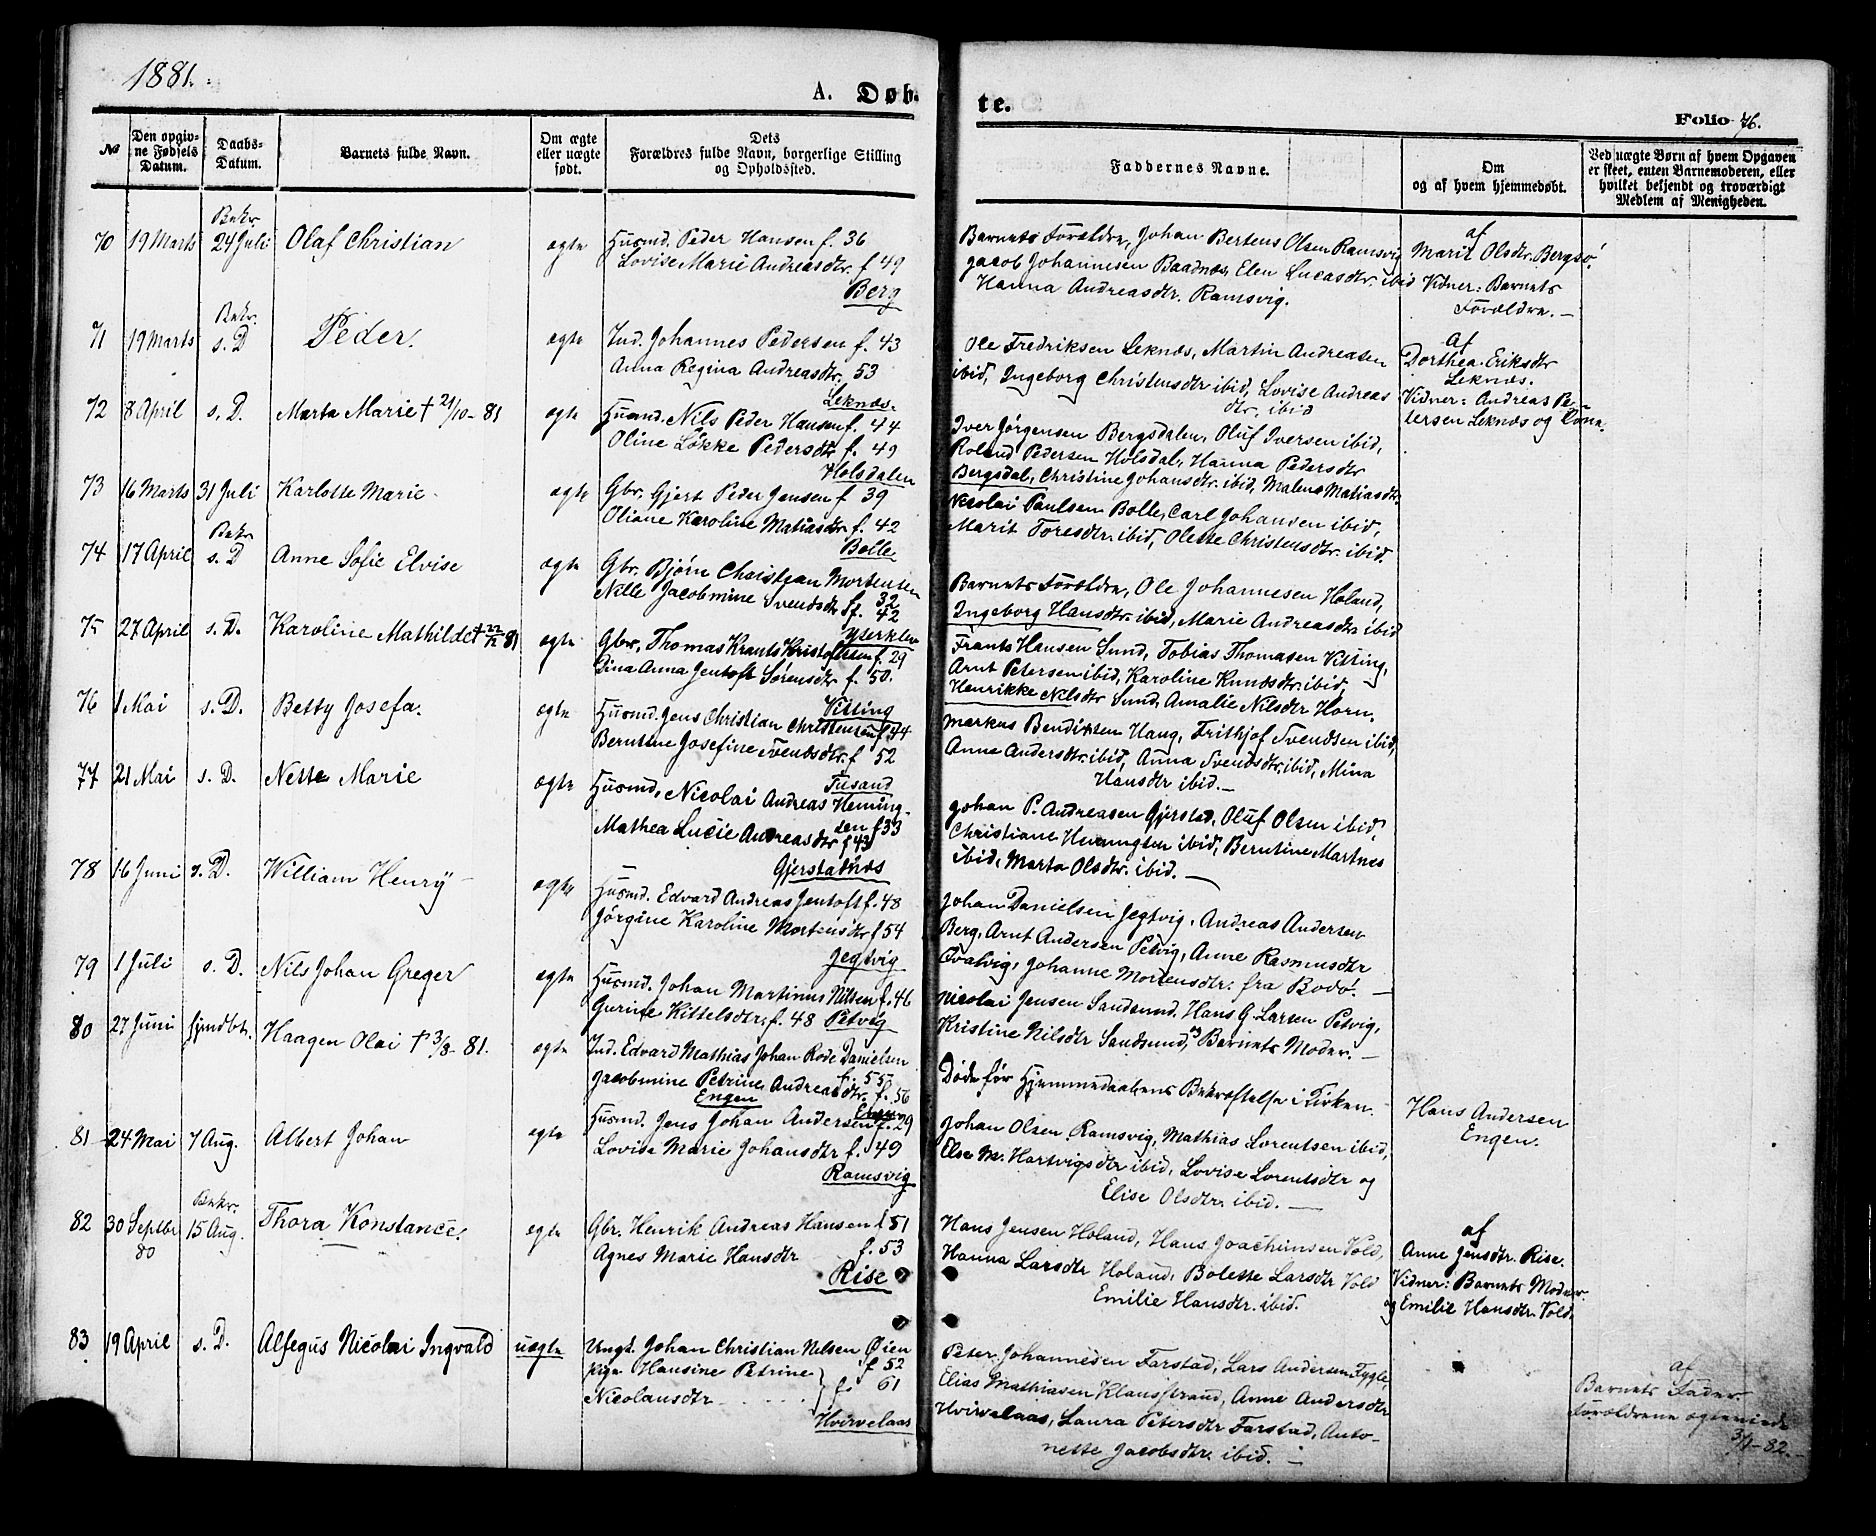 1881.
A. Døb-
te.
Folio 76.
№
Den opgiv-
ne Fødsels
Datum.
Daabs-
Datum.
Barnets fulde Navn.
Om ægte
eller uægte
født.
Dets
Forældres fulde Navn, borgerlige Stilling
og Opholdssted.
Faddernes Navne.
Om
og af hvem hjemmedøbt.
Ved uægte Børn af hvem Opgaven
er skeet, enten Barnemoderen, eller
hvilket bekjendt og troværdigt
Medlem af Menigheden.
70 19 Marts Bekr. 24 Juli Olaf Christian ægte Husmd. Peder Hansen f. 36
Lovise Marie Andreasdtr. f 49
Berg
Barnets Forældre, Johan Bertens Olsen Ramsvig
Jacob Johannesen Baadnæs, Elen Lucasdtr. ibid
Hanna Andreasdtr. Ramsvig.
af
Marit Olsdtr. Bergsø.
Vidner: Barnets
Forældre. —
71 19 Marts Bekr. s. D Peder. ægte Ind. Johannes Pedersen f. 43
Anna Regina Andreasdtr. 53
Leknæs.
Ole Fredriksen Leknæs, Martin Andreasen
ibid, Ingeborg Christensdtr ibid, Lovise Andreas
dtr. ibid
Af
Dorthea Eriksdtr
Leknæs.
Vidner: Andreas Pe-
tersen Leknæs og Kone.
72 8 April s. D. Marta Marie † 21/10 - 81 ægte Husmd. Nils Peder Hansen f. 44
Oline Løkke Pedersdtr f. 49
Holsdalen
Iver Jørgensen Bergsdalen, Oluf Iversen ibid,
Roland Pedersen Holsdal, Hanna Pedersdtr
Bergsdal, Christine Johansdtr. ibid, Malene Matiasdtr.
73 16 Marts 31 Juli Karlotte Marie ægte Gbr. Gjert Peder Jensen f 39
Oliane Karoline Matiasdtr f. 42
Bolle
Nicolai Paulsen Bolle, Carl Johansen ibid,
Marit Toresdtr. ibid, Olette Christensdtr. ibid.
74 17 April Bekr s. D Anne Sofie Elvise ægte Gbr. Bjørn Christian Mortensen
Nille Jacobmine Svendsdtr f. 32
f. 42
Ytterklev
Barnets Forældre, Ole Johannesen Holand,
Ingeborg Hansdtr. ibid, Marie Andreasdtr ibid
75 27 April s. D. Karoline Mathilde † 22/12 81 ægte Gbr. Thomas Krants Kristoffersen f. 29
Gina Anna Jentoft Sørensdtr f. 50.
Vitting
Frants Hansen Sund, Tobias Thomasen Vitting,
Arnt Petersen ibid, Karoline Knudsdtr. ibid,
Henrikke Nilsdtr Sund, Amalie Nilsdtr Horn.
76 1 Mai s. D. Betty Josefa. ægte Husmd. Jens Christian Christensen f 44
Berntine Josefine Svendsdtr. f 52
Tusand
Markus Bendiksen Haug, Frithjof Svendsen ibid,
Anne Andersdtr. ibid, Anna Svendsdtr. ibid, Mina
Hansdtr ibid. —
77 21 Mai s. D. Nette Marie ægte Husmd. Nicolai Andreas Heming-
sen f 33
Mathea Lucie Andreasdtr f 43
Gjerstadnæs
Johan P. Andreasen Gjerstad, Oluf Olsen ibid,
Christiane Hemingsen ibid, Berntine Martnes
ibid, Marta Olsdtr. ibid. —
78 16 Juni s. D. William Henry ægte Husmd. Edvard Andreas Jentoft f. 48
Jørgine Karoline Mortensdtr f 54
Jegtvig
Johan Danielsen Jegtvig, Andreas Andersen
Berg, Arnt Andersen Petvig, Anne Rasmusdtr
Qvalvig, Johanne Mortensdtr. fra Bodø. —
79 1 Juli s. D. Nils Johan Greger ægte Husmd. Johan Martinus Nilsen f. 46
Gurine Kittelsdtr. f. 48 Petvig
Nicolai Jensen Sandsund, Hans G. Larsen Petvig,
Kristine Nilsdtr Sandsund, og Barnets Moder. —
80 27 Juni hjmdbt. Haagen Olai † 3/8 - 81. ægte Ind. Edvard Mathias Johan Rode Danielsen
f. 55
Jacobmine Petrine Andreasdtr. f. 56
Engen
Døde før Hjemmedaabens Bekræftelse i Kirken. —
Hans Andersen
Engen.
81 24 Mai 7 Aug. Albert Johan ægte Husmd. Jens Johan Andersen f. 29
Lovise Marie Johansdtr f. 49
Ramsvig
Johan Olsen Ramsvig, Mathias Lorentsen ibid,
Else M. Hartvigsdtr ibid, Lovise Lorentsdtr og
Elise Olsdtr. ibid. —
82 30 Septbr 80 Bekr. 15 Aug. Thora Konstance. ægte Gbr. Henrik Andreas Hansen f 51
Agnes Marie Hansdtr f. 53
Rise
Hans Jensen Holand, Hans Joachimsen Vold,
Hanna Larsdtr Holand, Bolette Larsdtr Vold
Emilie Hansdtr. ibid.
af
Anne Jensdtr. Rise.
Vidner: Barnets Moder
og Emilie Hansdtr. Vold.
83 19 April s. D. Alfegus Nicolai Ingvald uægte Ungk. Johan Christian Nilsen Øien
f 52
Pige Hansine Petrine
Nicolausdtr f. 61
Hvirvelaas
Peter Johannesen Farstad, Lars Andersen Fygle,
Elias Mathiasen Klausstrand, Anne Andersdtr
Hvirvelaas, Laura Petersdtr Farstad, Anto-
nette Jacobsdtr. ibid. —
af
Barnets Fader
Forældrene egteviede
3/1 - 82.